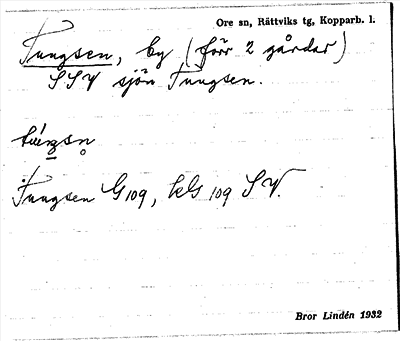 Ore sn, Rättviks tg, Kopparb. l.
Tungsen, by (förr 2 gårdar)
SSV sjön Tungsen.
Tungsen G 109, kG 109 SV.
Bror Lindén 1932